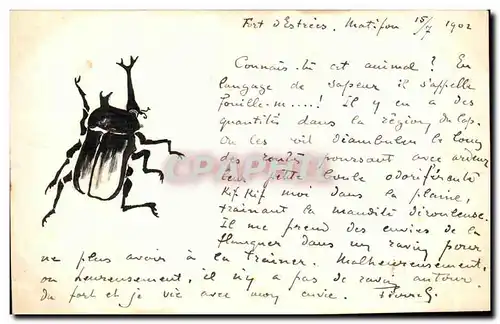 Fort d'Estrées. Matifou 15/7 1902
Connais-tu cet animal ? En
langage de sapeur il s'appelle
fouille-m.....! Il y en a des
quantités dans la région du Cap.
On les voit déambuler le long
des routes poussant avec ardeur
leur petite boule odoriférente
Kif Kif moi dans la plaine,
trainant la maudite dérouleuse.
Il me prend des envies de la
flanquer dans un ravin pour
ne plus avoir à la trainer. Malheureusement,
ou heureusement, il n'y a pas de ravin autour
du fort et je vis avec mon envie.